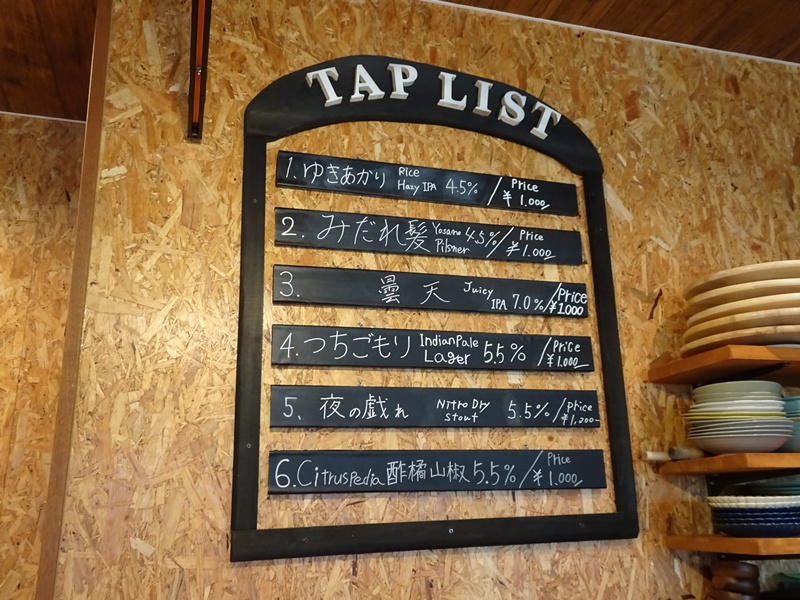 TAP LIST
1. ゆきあかり Rice Hazy IPA 4.5% / Price ¥1.000
2. みだれ髪 Yosano Pilsner 4.5% / Price ¥1.000
3. 曇天 Juicy IPA 7.0% / Price ¥1.000
4. つちごもり Indian Pale Lager 5.5% / Price ¥1.000
5、夜の戯れ Nitro Dry Stout 5.5% / Price ¥1,200-
6. Citruspedia 酢橘山椒 5.5% / Price ¥1.000